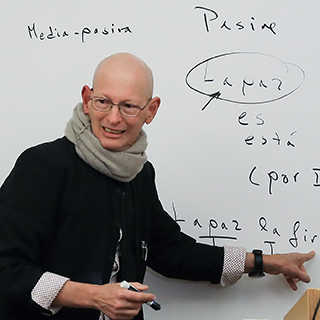 Media-pasiva
Pasive
La paz
es
está
(por
La paz la fir